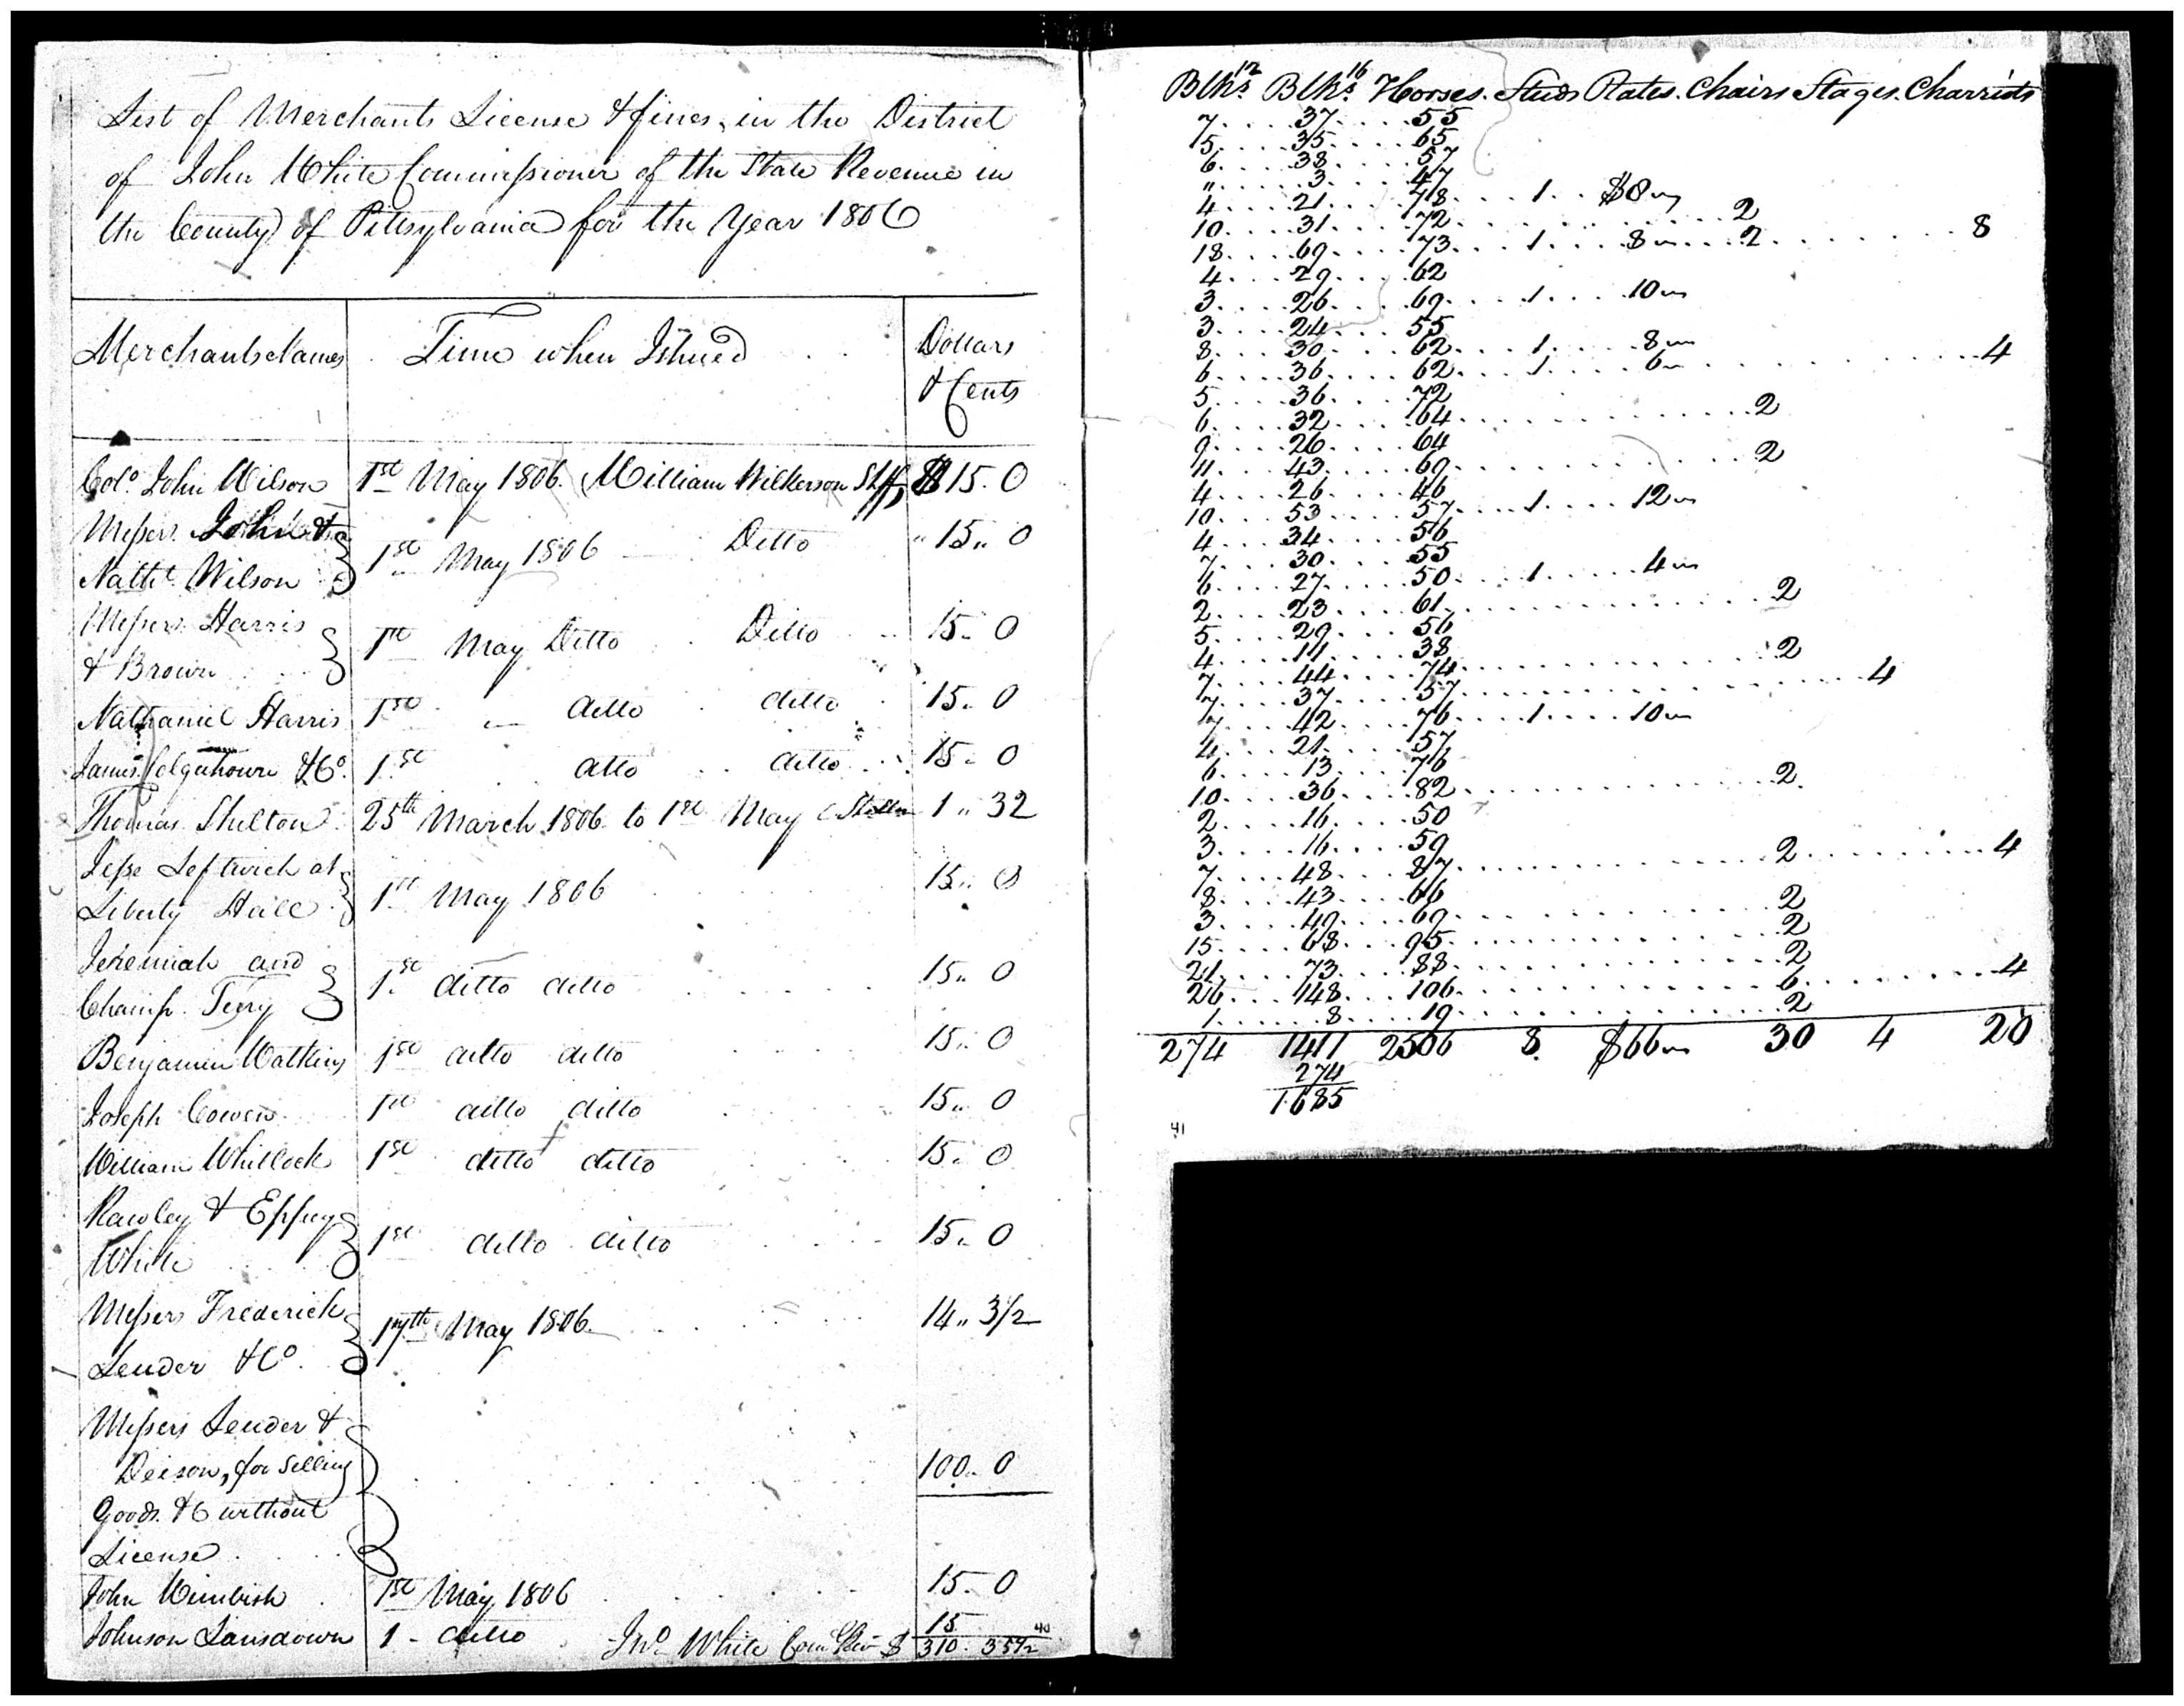 List of Merchants License & fines, in the District
of John White Commissioner of the State Revenue in
the County of Pittsylvania for the Year 1806
Merchants Names . Time when Issued . . Dollars
& Cents
Colo. John Wilson 1st May 1806. William Wilkerson Shff $15.0
Messrs. John &
Nathl. Wilson 1st May 1806 Ditto " 15 " 0
Messrs. Harris
& Brown 1st May Ditto Ditto 15. 0
Nathaniel Harris 1st — ditto ditto 15. 0
James & Co. 1st ditto ditto 15. 0
Thomas Shelton 25th March 1806 to 1st May 1 " 32
Jesse Leftwich at
Liberty Hall 1st May 1806 15 " 0
Jeremiah and
Champ. Terry 1st ditto ditto 15 " 0
Benjamin Watkins 1st ditto ditto 15. 0
Joseph Cowen 1st ditto ditto 15 " 0
William Whitlock 1st ditto ditto 15. 0
Rawley &
White 1st ditto ditto 15. 0
Messrs Frederick
Lender & Co. 17th May 1806. 14 " 3 1/2
Messrs Lender &
Deison, for selling
goods &c without
License 100. 0
John Wimbish 1st May 1806 15. 0
Johnson Lansdown 1 - ditto 15
Jno. White Com Rev $ 310. 35 1/2
40
Blks. 12 Blks. 16 Horses. Studs Rates. Chairs Stages. Charriots
7 37 55
15 35 65
6 38 57
" 3 47
4 21 48 1 $8
10 31 72 2
18 69 73 1 8 2 8
4 29 62
3 26 69 1 10
3 24 55
8 30 62 1 8
6 36 62 1 6 4
5 36 72
6 32 64 2
9 26 64
11 43 69 2
4 26 46
10 53 57 1 12
4 34 56
7 30 55
6 27 50 1 4
2 23 61 2
5 29 56
4 11 38 2
7 44 74 4
7 37 57
7 42 76 1 10
4 21 57
6 13 76
10 36 82 2
2 16 50
3 16 59
7 48 87 2 4
8 43 66
3 49 69 2
15 68 95 2
21 73 88 2
26 148 106 6 4
1 8 19 2
274 1411 2506 8 $66 30 4 20
274
1685
41